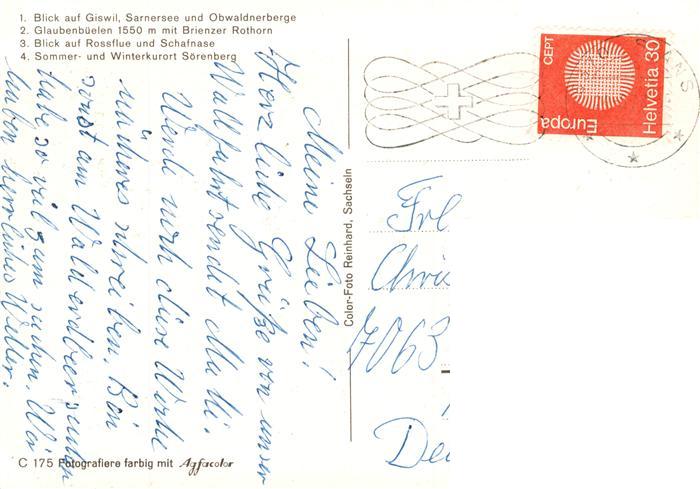 1. Blick auf Giswil, Sarnersee und Obwaldnerberge
2. Glaubenbüelen 1550 m mit Brienzer Rothorn
3. Blick auf Rossflue und Schafnase
4. Sommer- und Winterkurort Sörenberg
Meine Lieben!
Herzliche Grüße von unser
Wallfahrt sendet
Werde noch diese Woche
näheres schreiben. Bin
sonst am Waldrand
habe so viel zum machen. Wir
haben herrliches Wetter.
Color-Foto Reinhard, Sachseln
C 175 Fotografiere farbig mit Agfacolor
CEPT
Europa
Helvetia 30
Frl
Chri
7063
De